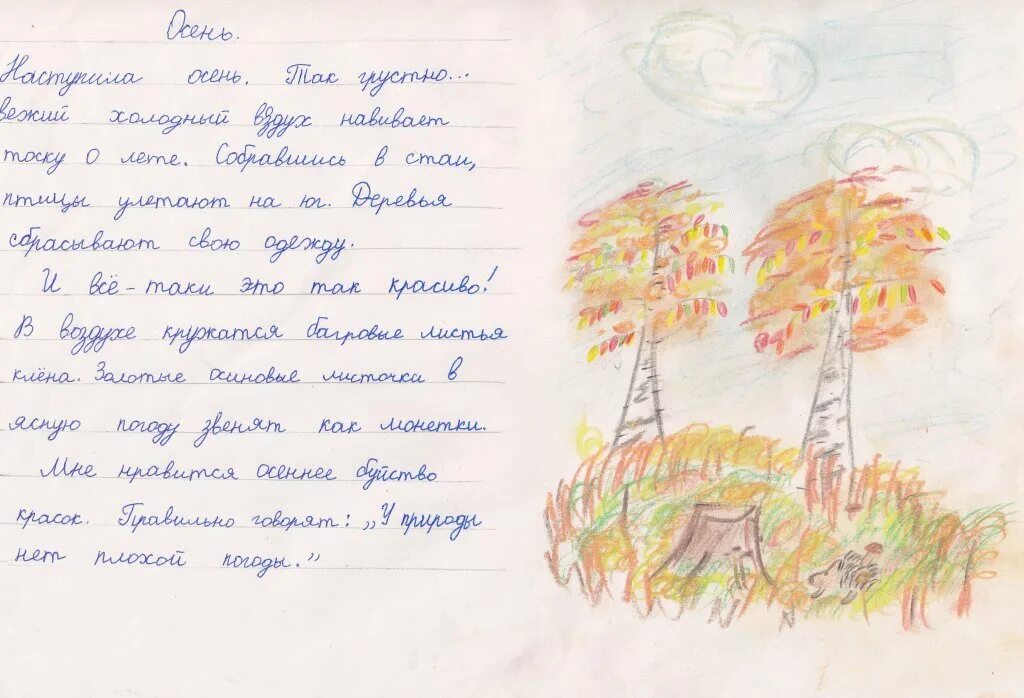 Осень.
Наступила осень. Так грустно...
вежий холодный вздух навивает
тоску о лете. Собравшись в стаи,
птицы улетают на юг. Деревья
сбрасывают свою одежду.
И всё-таки это так красиво!
В воздухе кружатся багровые листья
клёна. Золотые осиновые листочки в
ясную погоду звенят как монетки.
Мне нравится осеннее буйство
красок. Правильно говорят: „У природы
нет плохой погоды.”